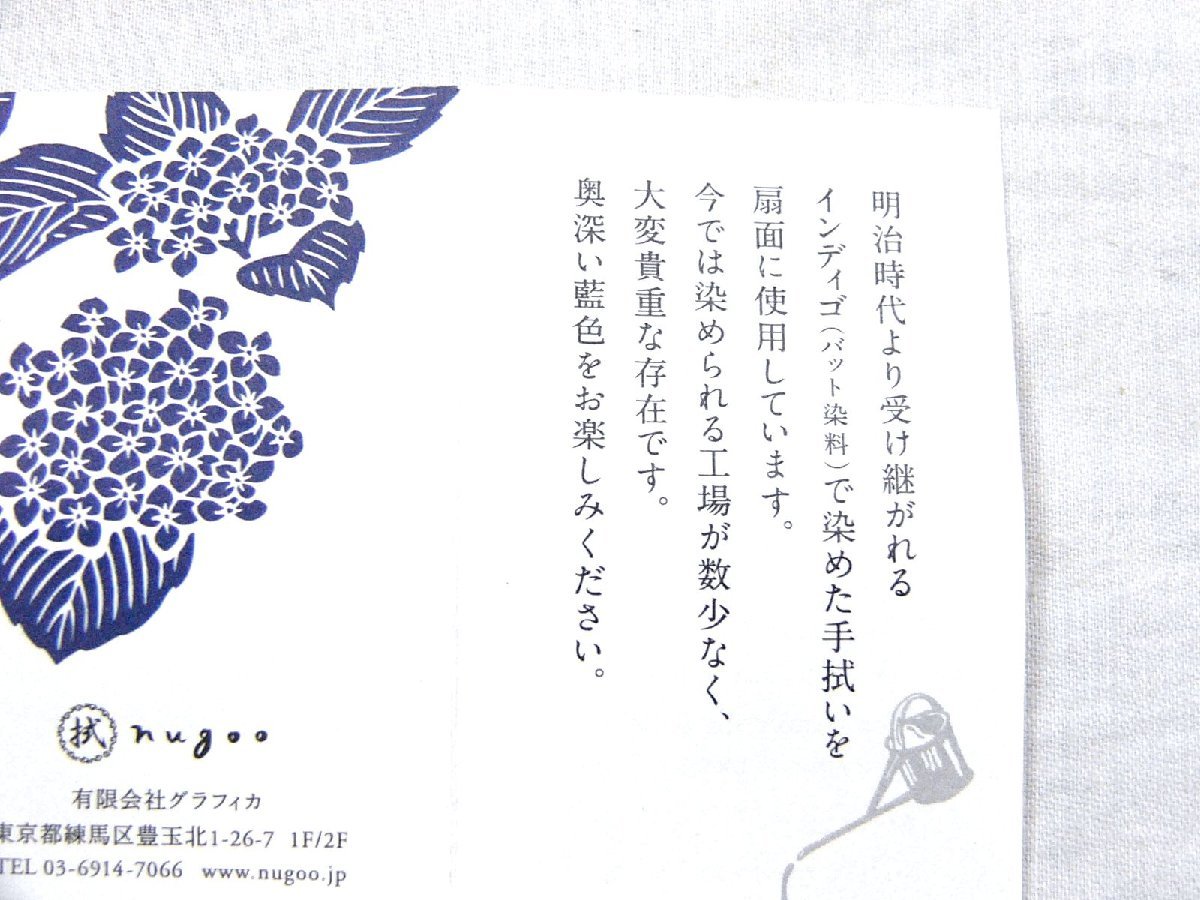 明治時代より受け継がれる
インディゴ(バット染料)で染めた手拭いを
扇面に使用しています。
今では染められる工場が数少なく、
大変貴重な存在です。
奥深い藍色をお楽しみください。
拭 nugoo
有限会社グラフィカ
東京都練馬区豊玉北1-26-7 1F/2F
TEL 03-6914-7066 www.nugoo.jp